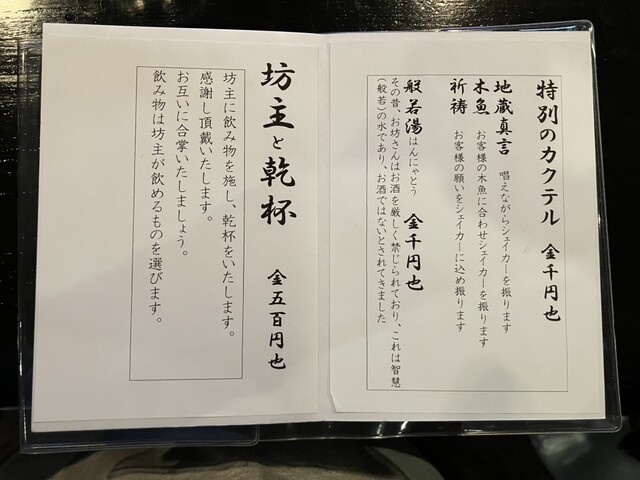 特別のカクテル 金千円也
地蔵真言 唱えながらシェイカーを振ります
木魚 お客様の木魚に合わせシェイカーを振ります
祈祷 お客様の願いをシェイカーに込め振ります
般若湯はんにゃとう 金千円也
その昔、お坊さんはお酒を厳しく禁じられており、これは智慧
(般若)の水であり、お酒ではないとされてきました
坊主と乾杯 金五百円也
坊主に飲み物を施し、乾杯をいたします。
感謝し頂戴いたします。
お互いに合掌いたしましょう。
飲み物は坊主が飲めるものを選びます。